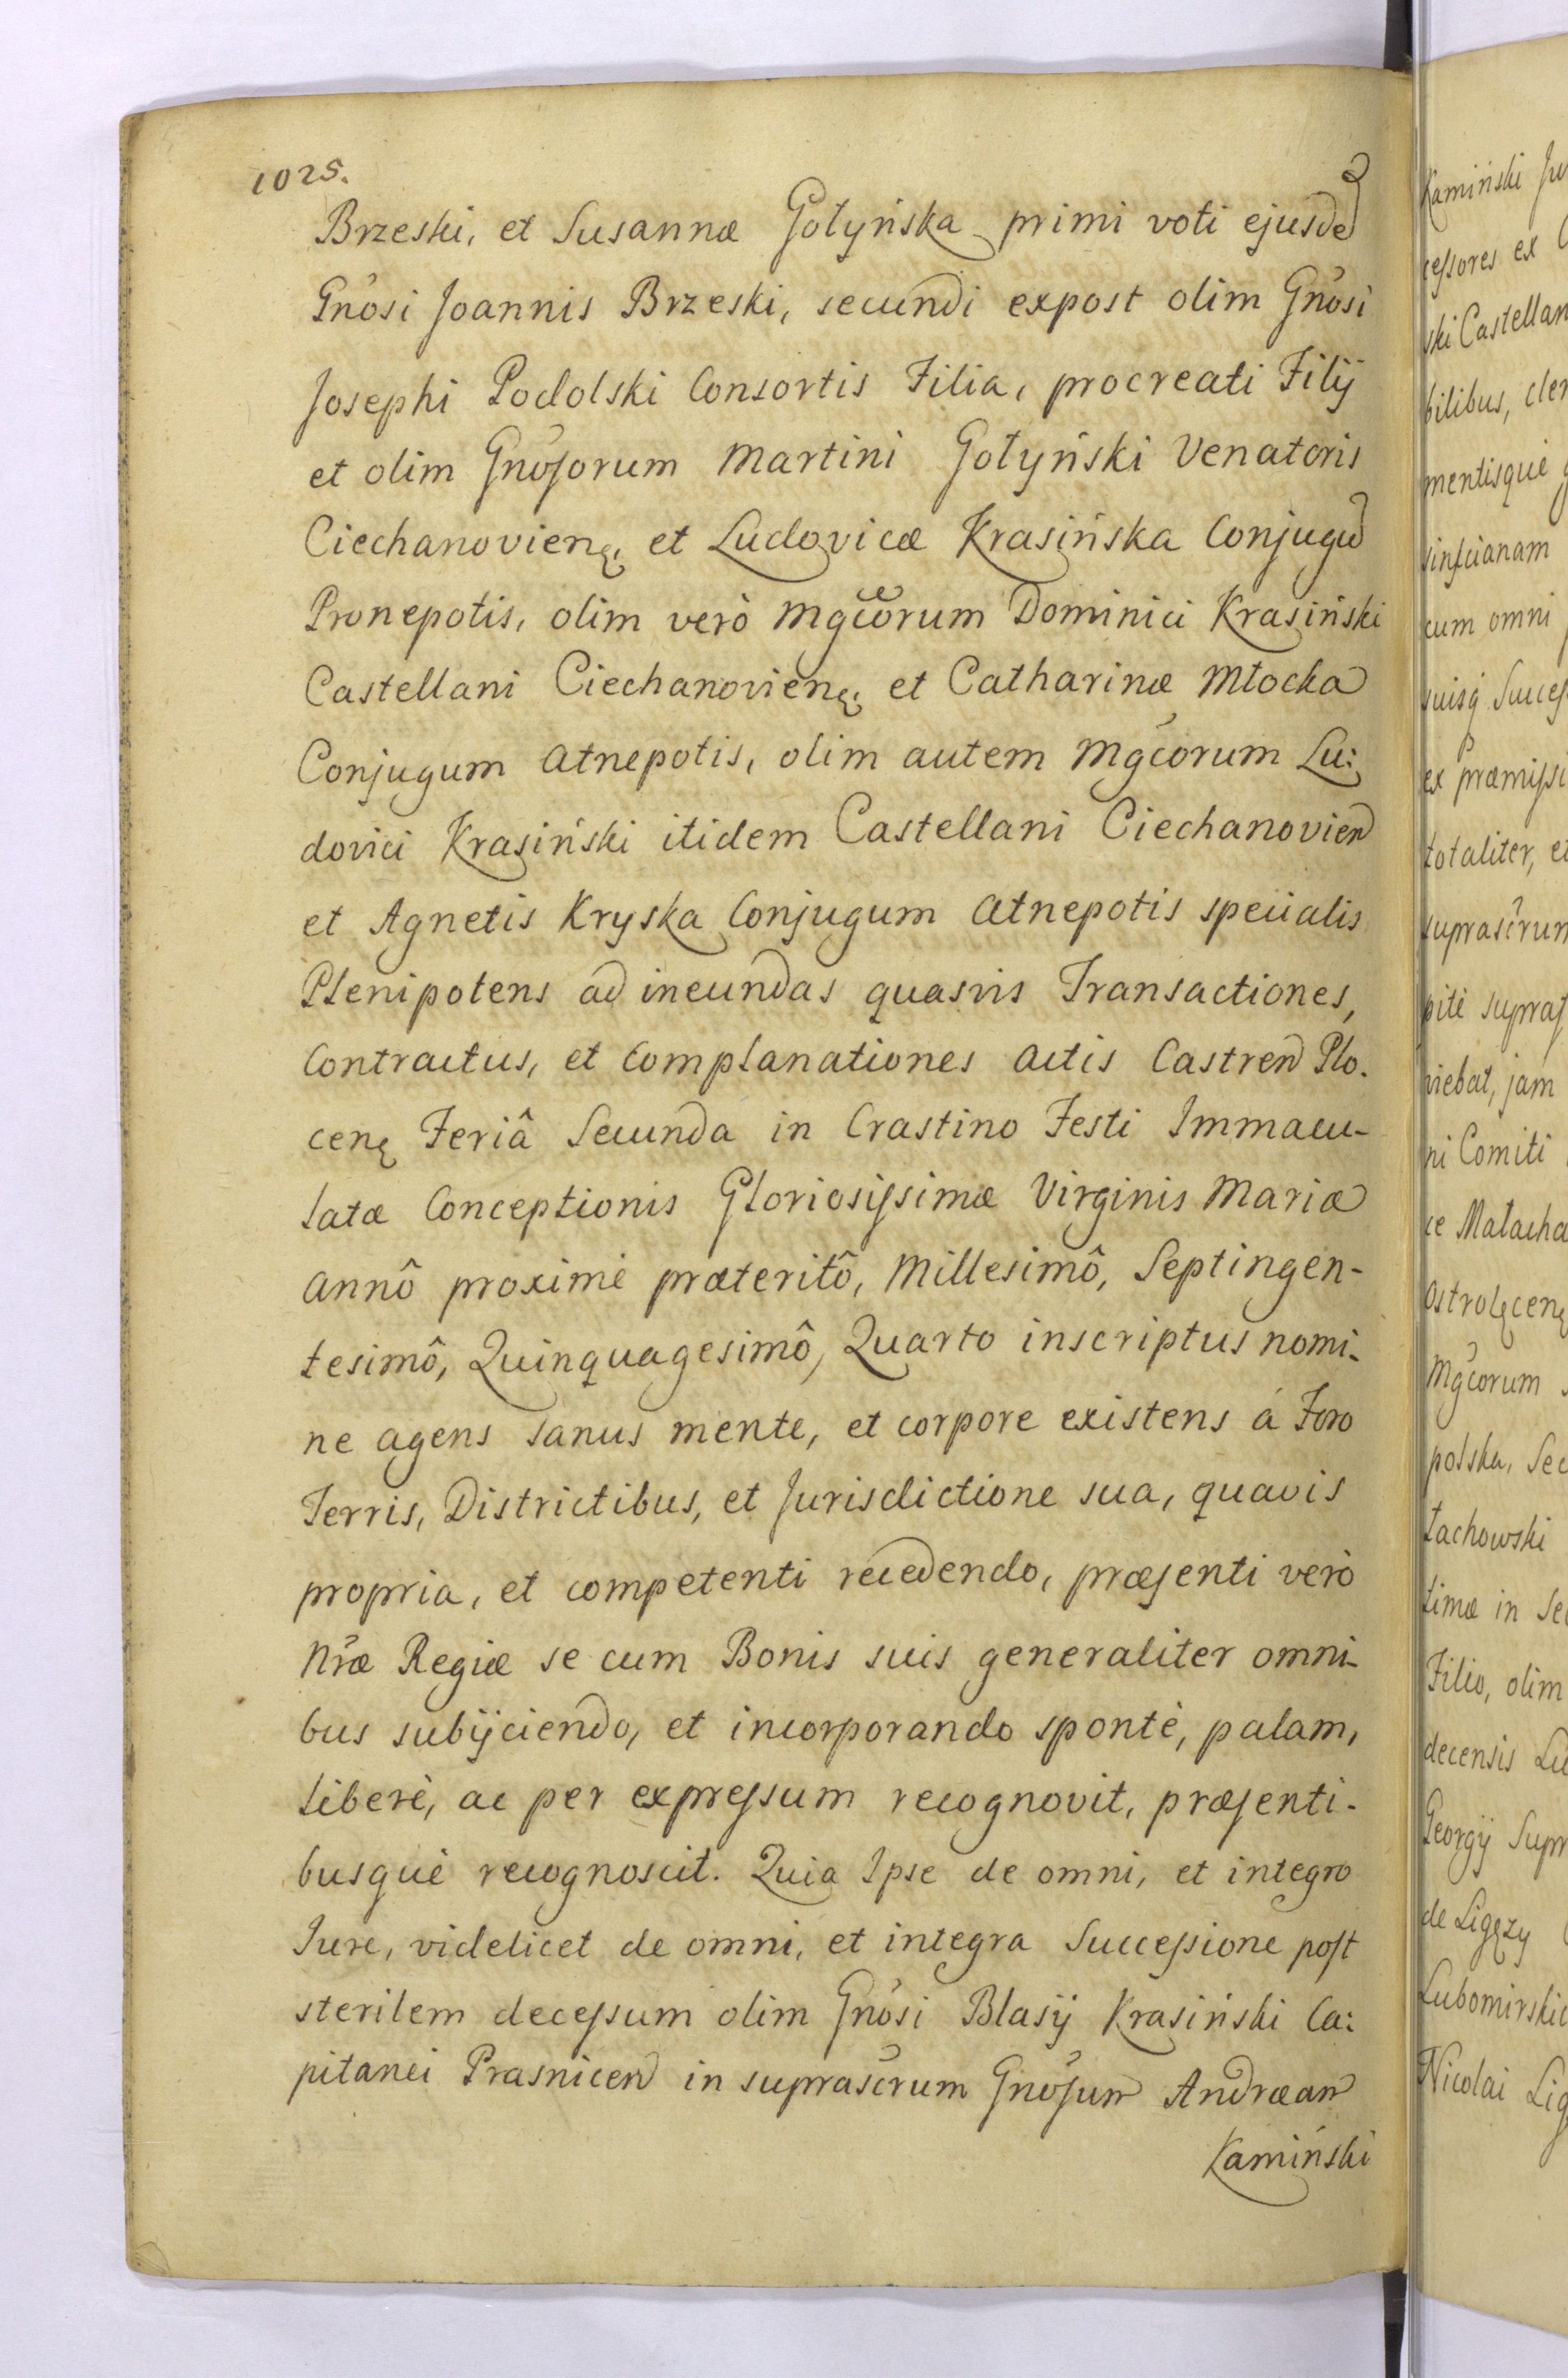 1025.
Brzeski, et Susannæ Gołyńska primi voti ejusdē
Gnosi Joannis Brzeski, secundi expost olim Gnosi
Josephi Podolski Consortis Filia, procreati Filij
et olim Gnosorum Martini Gołyński Venatoris
Ciechanovienę, et Ludovicæ Krasińska Conjugū
Pronepotis, olim verò Mgcorum Dominici Krasiński
Castellani Ciechanovienę, et Catharinæ Młocka
Conjugum Atnepotis, olim autem Mgcorum Lu:
dovici Krasiński itidem Castellani Ciechanovien
et Agnetis Kryska Conjugum Atnepotis specialis
Plenipotens ad ineundas quasvis Transactiones,
Contractus, et Complanationes Actis Castren Plo.
cenę Feriâ Secunda in Crastino Festi Immacu-
latæ Conceptionis Gloriosissimæ Virginis Mariæ
Annô proximè præteritô, Millesimô, Septingen-
tesimô, Quinquagesimô, Quarto inscriptus nomi-
ne agens sanus mente, et corpore existens á Foro
Terris, Districtibus, et Jurisdictione sua, quavis
propria, et competenti recedendo, præsenti verò
Nræ Regiæ se cum Bonis suis generaliter omni-
bus subijciendo, et incorporando spontè, palam,
liberè, ac per expressum recognovit, præsenti-
busquè recognoscit. Quia Ipse de omni, et integro
Jure, videlicet de omni, et integra Successione post
sterilem decessum olim Gnosi Blasij Krasiński Ca:
pitanei Prasnicen in suprascrum Gnosum Andræam
Kamiński
Kamiński
cessores ex
ski
bilibus,
mentisquè
cum omni
suisq
ex
totaliter,
suprascrum
pitè
viebat, jam
ni Comiti
ce
Ostrolęcenę
Mgcorum
polska,
łachowski
timæ in
Filio, olim
decensis
Georgij
de Ligęzy
Nicolai